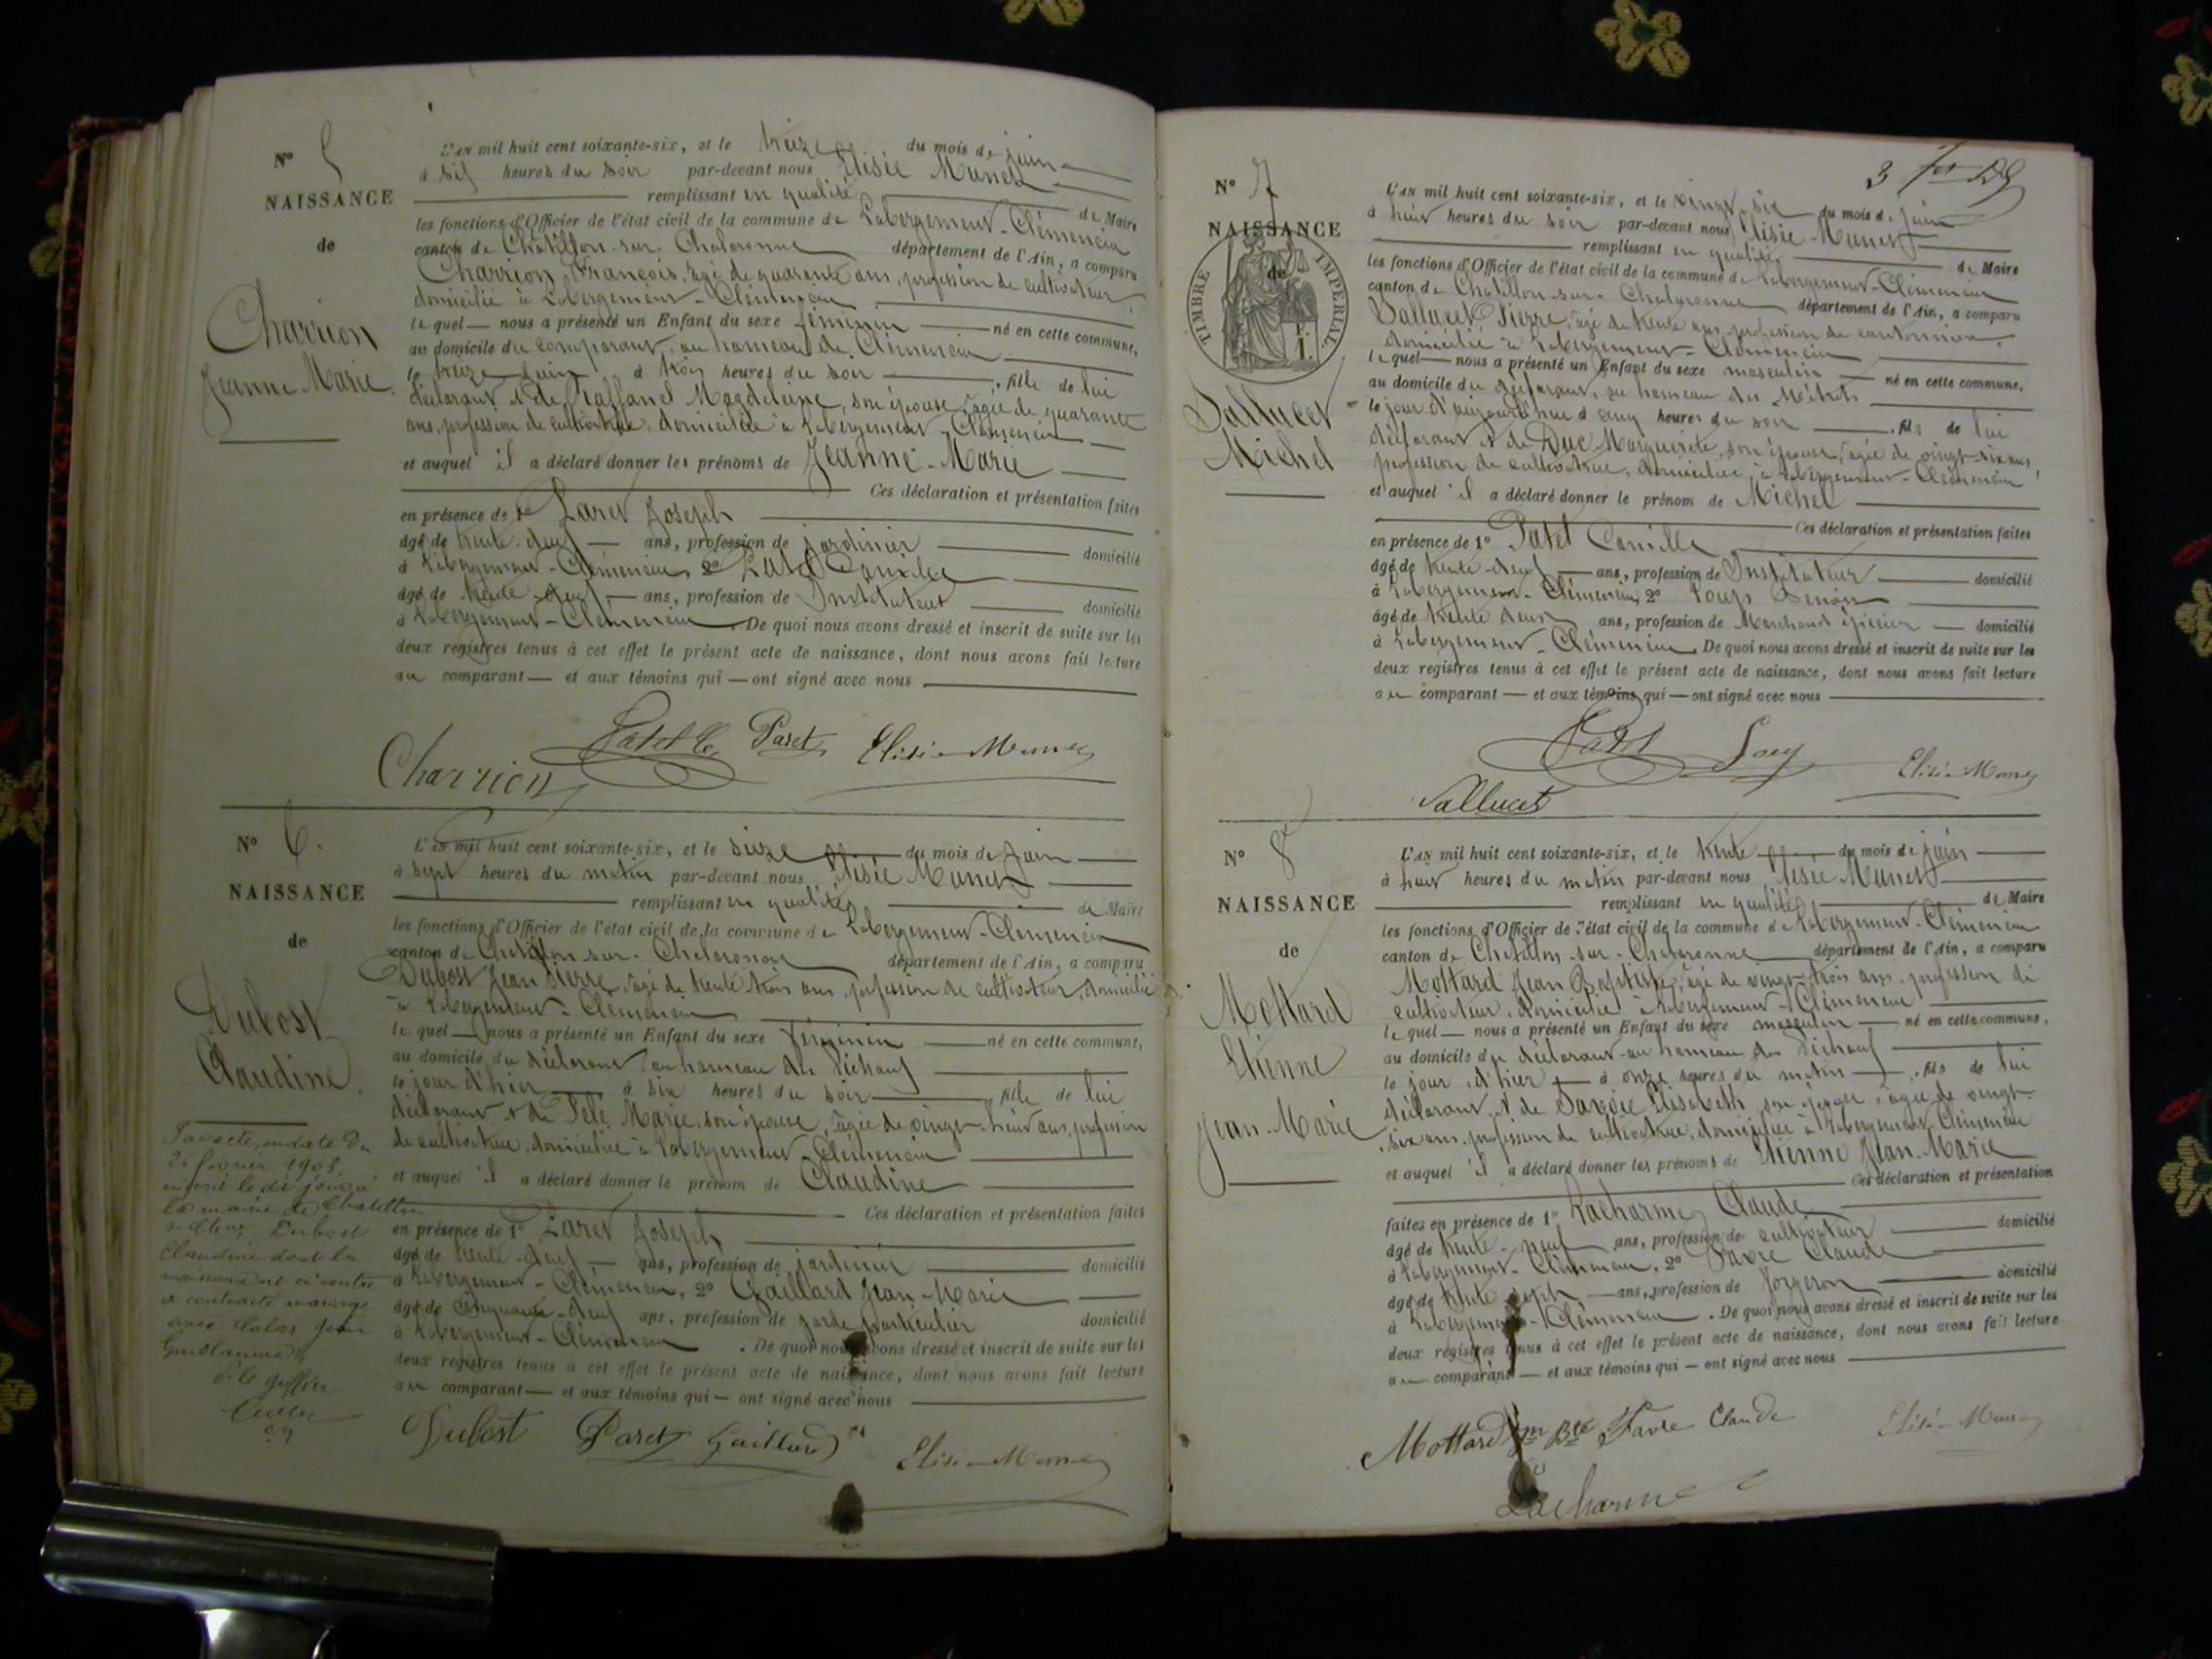 N° 5
NAISSANCE
de
Charrion
Jeanne Marie
L'AN mil huit cent soixante-six, et le treize du mois de juin
à six heures du soir par-devant nous Élisée Munet
remplissant en qualité de Maire
les fonctions d'Officier de l'état civil de la commune de Labergement-Clémencia
canton de Châtillon-sur-Chalaronne département de l'Ain, a comparu
Charrion François, âgé de quarante ans, profession de cultivateur
domicilié à Labergement-Clémencia
lequel nous a présenté un Enfant du sexe féminin né en cette commune,
au domicile du comparant, au hameau de Clémencia
le treize juin à trois heures du soir, fille de lui
déclarant & de Raffanel Magdeleine, son épouse, âgée de quarante
ans, profession de cultivatrice, domiciliée à Labergement-Clémencia
et auquel il a déclaré donner les prénoms de Jeanne-Marie
Ces déclaration et présentation faites
en présence de 1° Paret Joseph
âgé de trente-neuf ans, profession de jardinier domicilié
à Labergement-Clémencia, 2° Patel Camille
âgé de trente-neuf ans, profession de Instituteur domicilié
à Labergement-Clémencia. De quoi nous avons dressé et inscrit de suite sur les
deux registres tenus à cet effet le présent acte de naissance, dont nous avons fait lecture
au comparant et aux témoins qui ont signé avec nous
Charrion Patel C. Paret Elisée Munet
N° 6.
NAISSANCE
de
Dubost
Claudine
Par acte, en date du
26 février 1908,
inscrit le dit jour à
la mairie de Chatillon
s. Chne, Dubost
Claudine dont la
naissance est ci-contre
a contracté mariage
avec Colas Jean
Guillaume,
P. le greffier
L'AN mil huit cent soixante-six, et le seize du mois de juin
à sept heures du matin par-devant nous Élisée Munet
remplissant en qualité de Maire
les fonctions d'Officier de l'état civil de la commune de Labergement-Clémencia
canton de Châtillon-sur-Chalaronne département de l'Ain, a comparu
Dubost Jean Pierre, âgé de trente trois ans, profession de cultivateur, domicilié
à Labergement-Clémencia
lequel nous a présenté un Enfant du sexe féminin né en cette commune,
au domicile du déclarant au hameau des
le jour d'hier à six heures du soir, fille de lui
déclarant & de Pelé Marie, son épouse, âgée de vingt-huit ans, profession
de cultivatrice, domiciliée à Labergement-Clémencia
et auquel il a déclaré donner le prénom de Claudine
Ces déclaration et présentation faites
en présence de 1° Paret Joseph
âgé de trente-neuf ans, profession de jardinier domicilié
à Labergement-Clémencia, 2° Gaillard Jean-Marie
âgé de cinquante-neuf ans, profession de garde particulier domicilié
à Labergement-Clémencia. De quoi nous avons dressé et inscrit de suite sur les
deux registres tenus à cet effet le présent acte de naissance, dont nous avons fait lecture
au comparant et aux témoins qui ont signé avec nous
Dubost Paret Gaillard Elisée Munet
3
N° 7
NAISSANCE
de
TIMBRE IMPERIAL
1 F.
Sallucet
Michel
L'AN mil huit cent soixante-six, et le vingt-six du mois de juin
à huit heures du soir par-devant nous Élisée Munet
remplissant en qualité de Maire
les fonctions d'Officier de l'état civil de la commune de Labergement-Clémencia
canton de Châtillon-sur-Chalaronne département de l'Ain, a comparu
Sallucet Pierre, âgé de trente ans, profession de cantonnier,
domicilié à Labergement-Clémencia
lequel nous a présenté un Enfant du sexe masculin né en cette commune,
au domicile du déclarant, au hameau des
le jour d'aujourd'hui à cinq heures du soir, fils de lui
déclarant & de Duc Marguerite, son épouse, âgée de vingt-six ans,
profession de cultivatrice, domiciliée à Labergement-Clémencia
et auquel il a déclaré donner le prénom de Michel
Ces déclaration et présentation faites
en présence de 1° Patel Camille
âgé de trente-neuf ans, profession de Instituteur domicilié
à Labergement-Clémencia, 2° Loup Benoît
âgé de trente deux ans, profession de Marchand épicier domicilié
à Labergement-Clémencia. De quoi nous avons dressé et inscrit de suite sur les
deux registres tenus à cet effet le présent acte de naissance, dont nous avons fait lecture
au comparant et aux témoins qui ont signé avec nous
Patel Loup Elisée Munet
Sallucet
N° 8
NAISSANCE
de
Mottard
Etienne
Jean-Marie
L'AN mil huit cent soixante-six, et le trente du mois de juin
à huit heures du matin par-devant nous Élisée Munet
remplissant en qualité de Maire
les fonctions d'Officier de l'état civil de la commune de Labergement-Clémencia
canton de Châtillon-sur-Chalaronne département de l'Ain, a comparu
Mottard Jean Baptiste, âgé de vingt-trois ans, profession de
cultivateur, domicilié à Labergement-Clémencia
lequel nous a présenté un Enfant du sexe masculin né en cette commune,
au domicile du déclarant au hameau des
le jour d'hier à onze heures du matin, fils de lui
déclarant & de Savoie Elisabeth, son épouse, âgée de vingt-
six ans, profession de cultivatrice, domiciliée à Labergement-Clémencia
et auquel il a déclaré donner les prénoms de Etienne Jean-Marie
Ces déclaration et présentation
faites en présence de 1° Lacharme Claude
âgé de trente-neuf ans, profession de cultivateur domicilié
à Labergement-Clémencia, 2° Favre Claude
âgé de trente sept ans, profession de forgeron domicilié
à Labergement-Clémencia. De quoi nous avons dressé et inscrit de suite sur les
deux registres tenus à cet effet le présent acte de naissance, dont nous avons fait lecture
au comparant et aux témoins qui ont signé avec nous
Mottard Jn Bte Favre Claude Elisée Munet
Lacharme